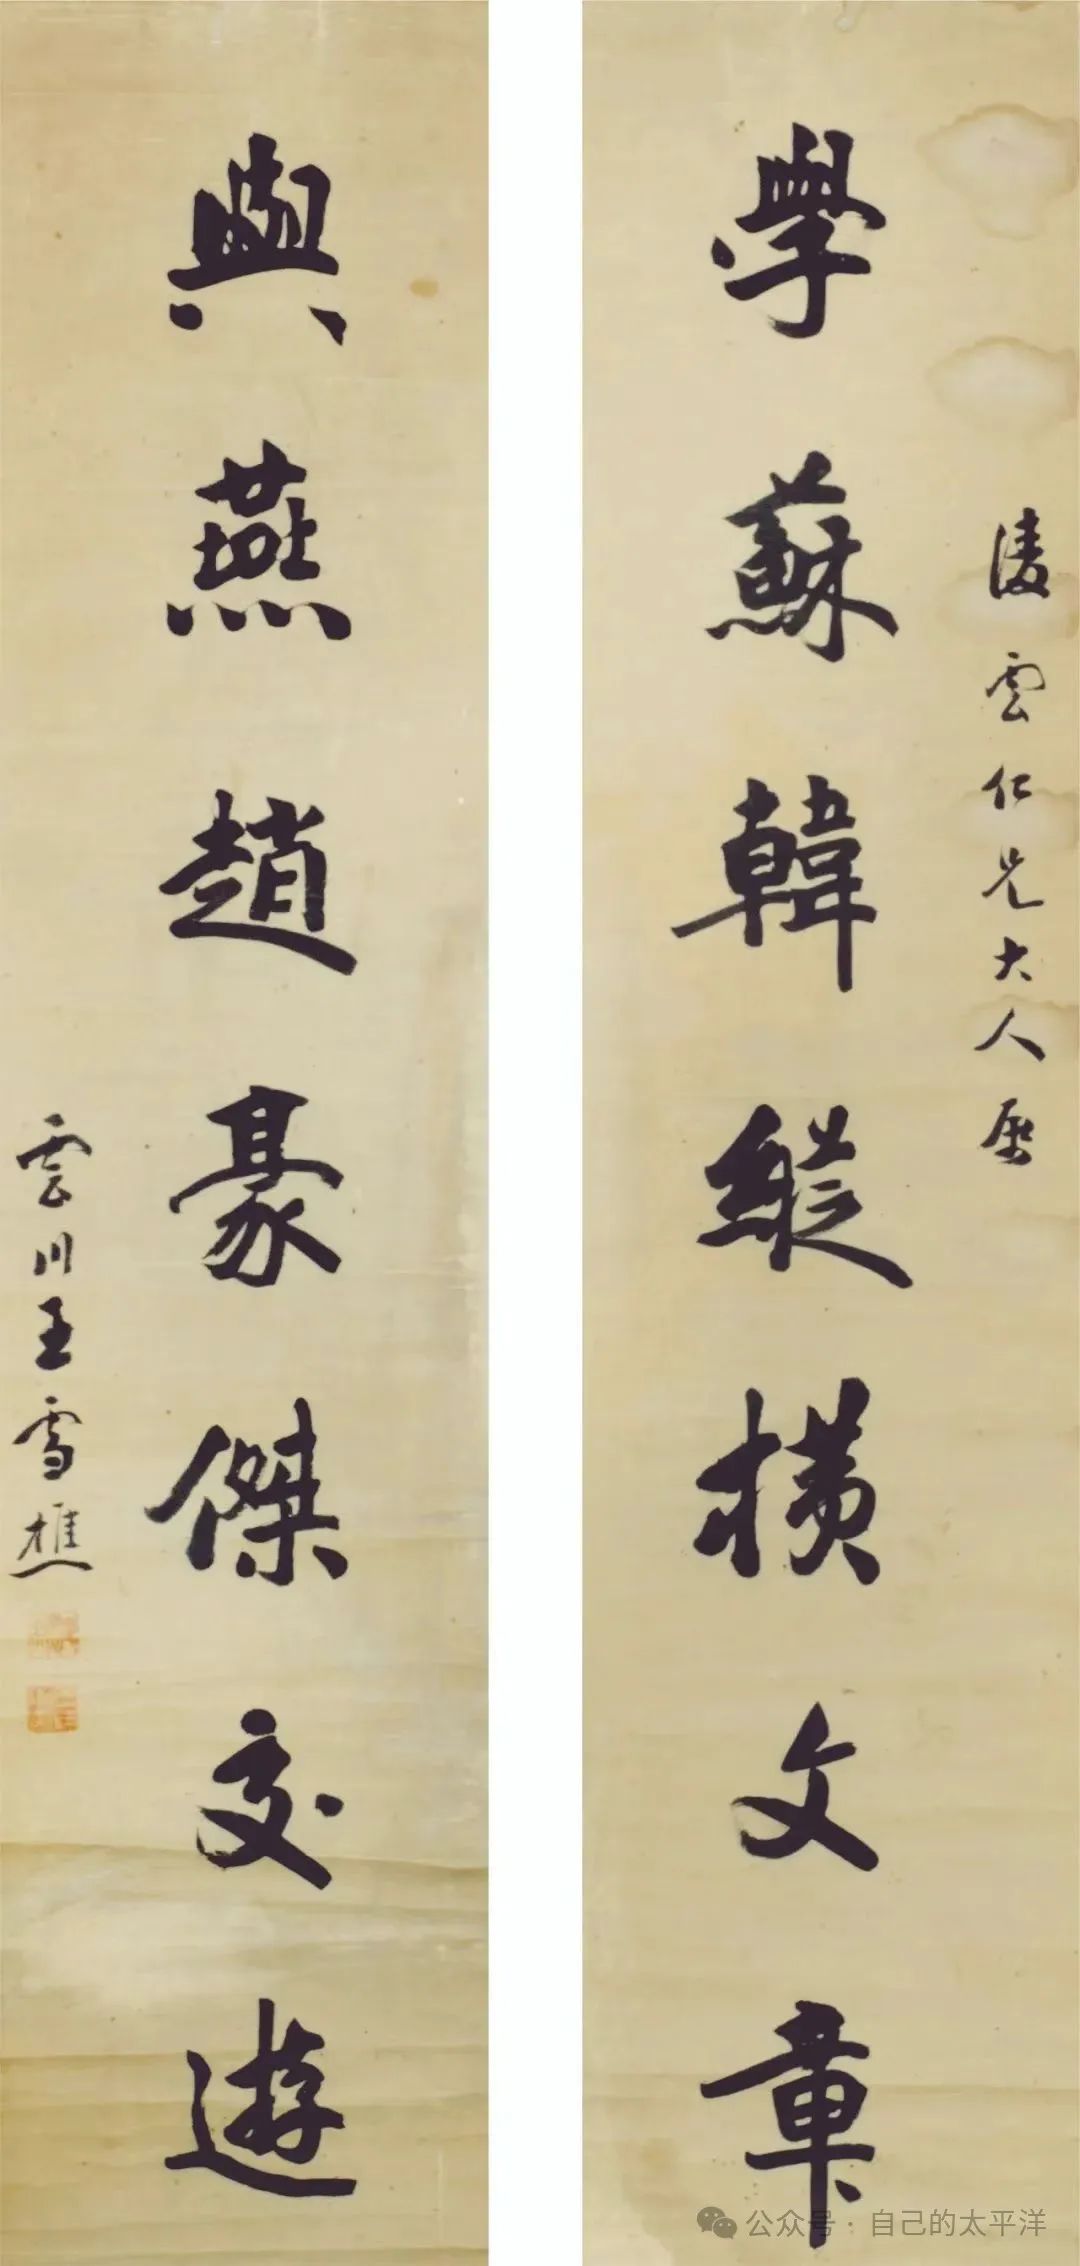 凌雲仁兄大人屬
學蘇韓縱橫文章
與燕趙豪傑交遊
雲川王雪樵
公众号：自己的太平洋